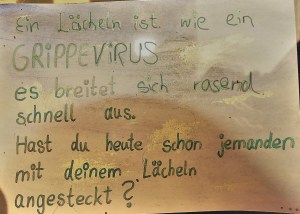 Ein Lächeln ist wie ein
GRIPPEVIRUS
es breitet sich rasend
schnell aus.
Hast du heute schon jemanden
mit deinem Lächeln
angesteckt?